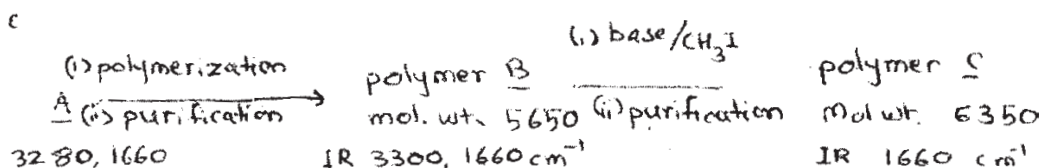 c
(i) polymerization
A (ii) purification
3280, 1660
polymer B
mol. wt. 5650
IR 3300, 1660 cm⁻¹
(i) base/CH₃I
(ii) purification
polymer C
Mol wt. 6350
IR 1660 cm⁻¹